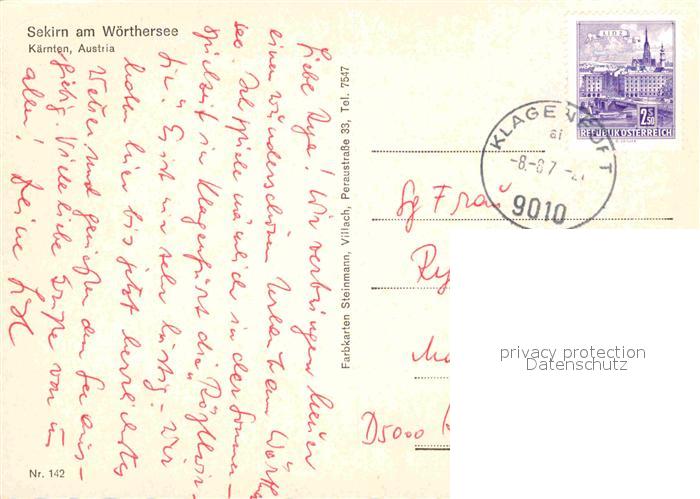 Sekirn am Wörthersee
Kärnten, Austria
Liebe Inge! Wir verbringen heuer
einen wunderschönen Urlaub am Wörther
see. Ich spiele nämlich in der Sommer-
spielzeit in Klagenfurt die "Rößlwir-
tin". Es ist ein sehr lustig - wir
haben hier bis jetzt herrlichstes
Wetter und genießen den See aus-
giebig. Viele liebe Grüße von uns
allen! Deine
Nr. 142
Farbkarten Steinmann, Villach, Peraustraße 33, Tel. 7547
LINZ
2.50
REPUBLIK ÖSTERREICH
KLAGENFURT
-8.-8.7
9010
Sg Frau
D5000
privacy protection
Datenschutz